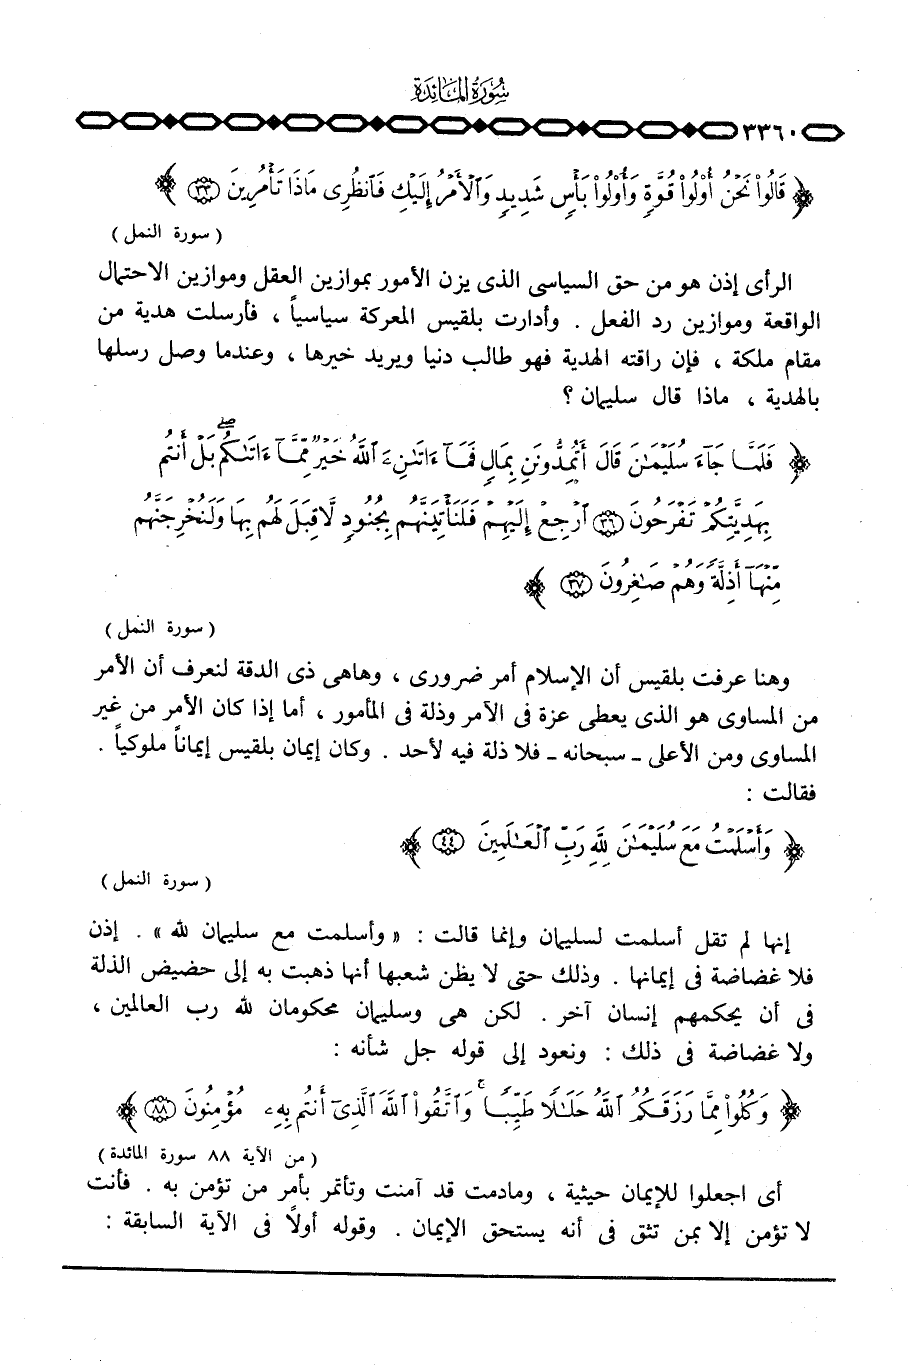 سُورَةُ المَائِدَةِ
٣٣٦٠
﴿ قَالُوا۟ نَحْنُ أُو۟لُوا۟ قُوَّةٍ وَأُو۟لُوا۟ بَأْسٍ شَدِيدٍ وَٱلْأَمْرُ إِلَيْكِ فَٱنظُرِى مَاذَا تَأْمُرِينَ ٣٣ ﴾
( سورة النمل )
الرأى إذن هو من حق السياسى الذى يزن الأمور بموازين العقل وموازين الاحتمال
الواقعة وموازين رد الفعل . وأدارت بلقيس المعركة سياسياً ، فأرسلت هدية من
مقام ملكة ، فإن راقته الهدية فهو طالب دنيا ويريد خيرها ، وعندما وصل رسلها
بالهدية ، ماذا قال سليمان ؟
﴿ فَلَمَّا جَآءَ سُلَيْمَـٰنَ قَالَ أَتُمِدُّونَنِ بِمَالٍ فَمَآ ءَاتَىٰنِۦَ ٱللَّهُ خَيْرٌ مِّمَّآ ءَاتَىٰكُم ۖ بَلْ أَنتُم
بِهَدِيَّتِكُمْ تَفْرَحُونَ ٣٦ ٱرْجِعْ إِلَيْهِمْ فَلَنَأْتِيَنَّهُم بِجُنُودٍ لَّا قِبَلَ لَهُم بِهَا وَلَنُخْرِجَنَّهُم
مِّنْهَآ أَذِلَّةً وَهُمْ صَـٰغِرُونَ ٣٧ ﴾
( سورة النمل )
وهنا عرفت بلقيس أن الإسلام أمر ضرورى ، وهاهى ذى الدقة لنعرف أن الأمر
من المساوى هو الذى يعطى عزة فى الآمر وذلة فى المأمور ، أما إذا كان الأمر من غير
المساوى ومن الأعلى ـ سبحانه ـ فلا ذلة فيه لأحد . وكان إيمان بلقيس إيماناً ملوكياً .
فقالت :
﴿ وَأَسْلَمْتُ مَعَ سُلَيْمَـٰنَ لِلَّهِ رَبِّ ٱلْعَـٰلَمِينَ ٤٤ ﴾
( سورة النمل )
إنها لم تقل أسلمت لسليمان وإنما قالت : « وأسلمت مع سليمان لله » . إذن
فلا غضاضة فى إيمانها . وذلك حتى لا يظن شعبها أنها ذهبت به إلى حضيض الذلة
فى أن يحكمهم إنسان آخر . لكن هى وسليمان محكومان لله رب العالمين ،
ولا غضاضة فى ذلك : ونعود إلى قوله جل شأنه :
﴿ وَكُلُوا۟ مِمَّا رَزَقَكُمُ ٱللَّهُ حَلَـٰلًا طَيِّبًا ۚ وَٱتَّقُوا۟ ٱللَّهَ ٱلَّذِىٓ أَنتُم بِهِۦ مُؤْمِنُونَ ٨٨ ﴾
( من الآية ٨٨ سورة المائدة )
أى اجعلوا للإيمان حيثية ، ومادمت قد آمنت وتأتمر بأمر من تؤمن به . فأنت
لا تؤمن إلا بمن تثق فى أنه يستحق الإيمان . وقوله أولاً فى الآية السابقة :